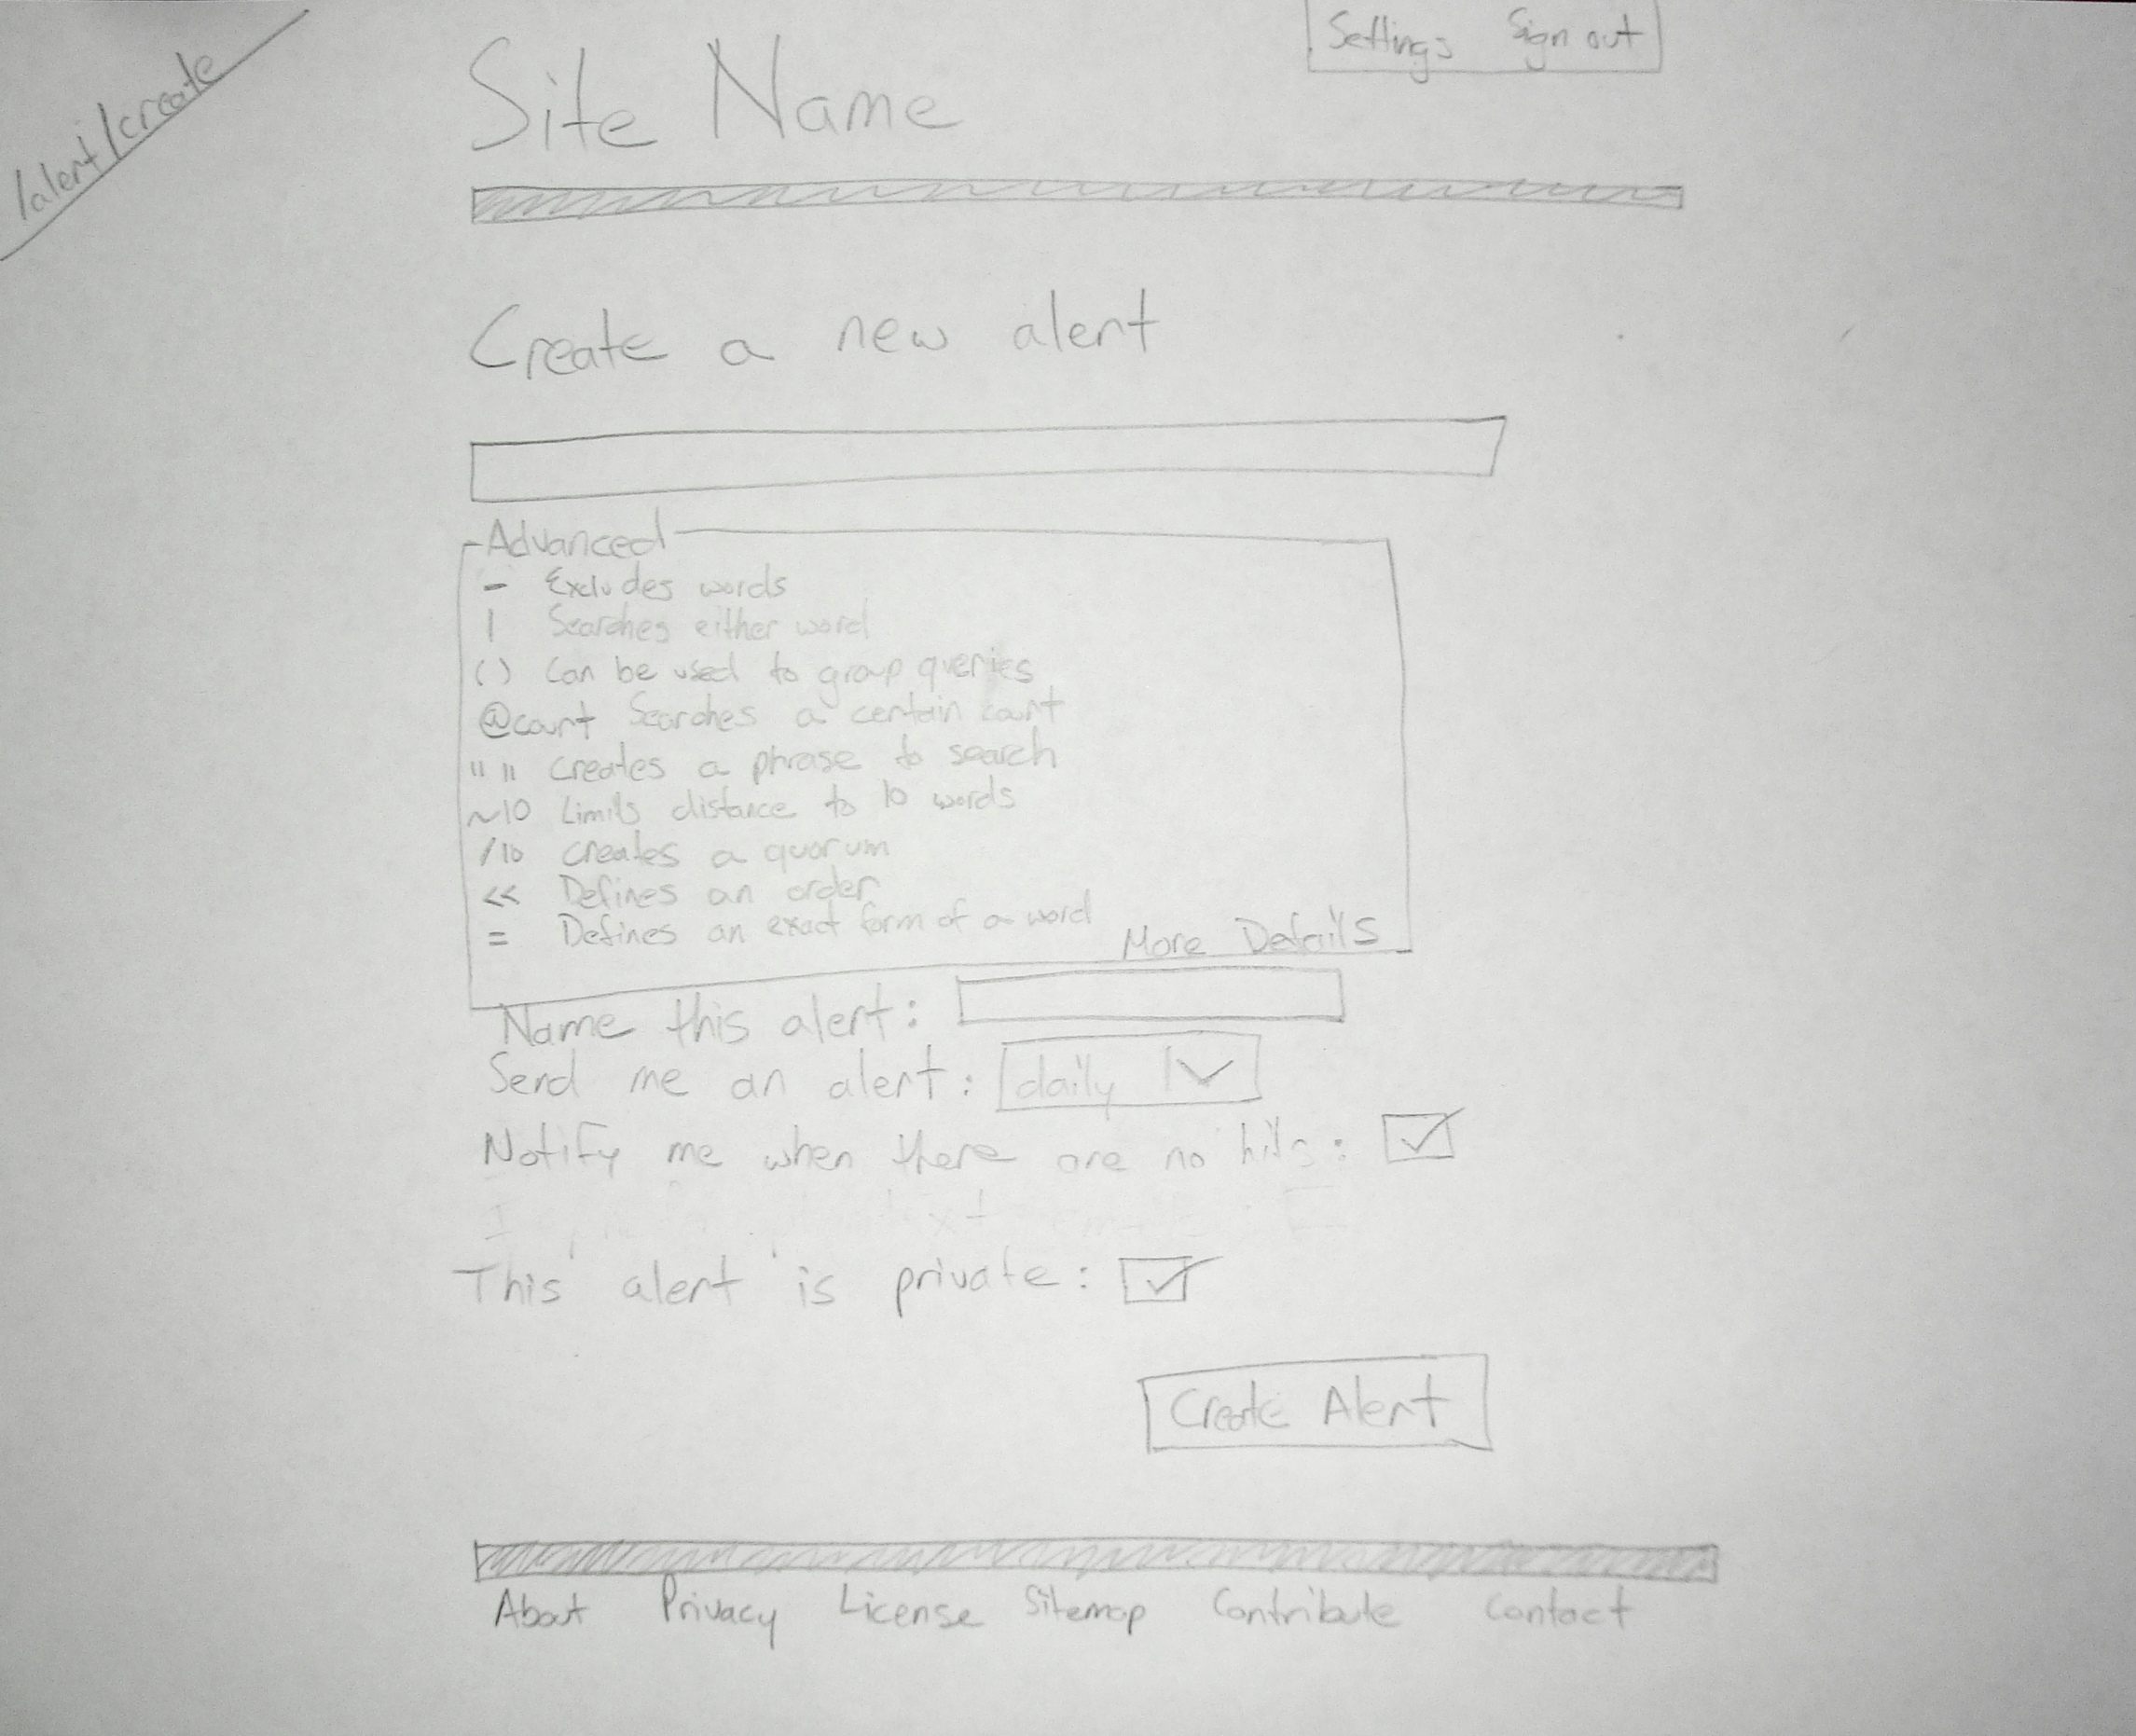 /alert/create
Settings Sign out
Site Name
Create a new alert
Advanced
- Excludes words
| Searches either word
( ) Can be used to group queries
@court Searches a certain court
" " creates a phrase to search
~10 Limits distance to 10 words
/10 creates a quorum
<< Defines an order
= Defines an exact form of a word
More Details
Name this alert:
Send me an alert: daily
Notify me when there are no hits:
This alert is private:
Create Alert
About Privacy License Sitemap Contribute Contact